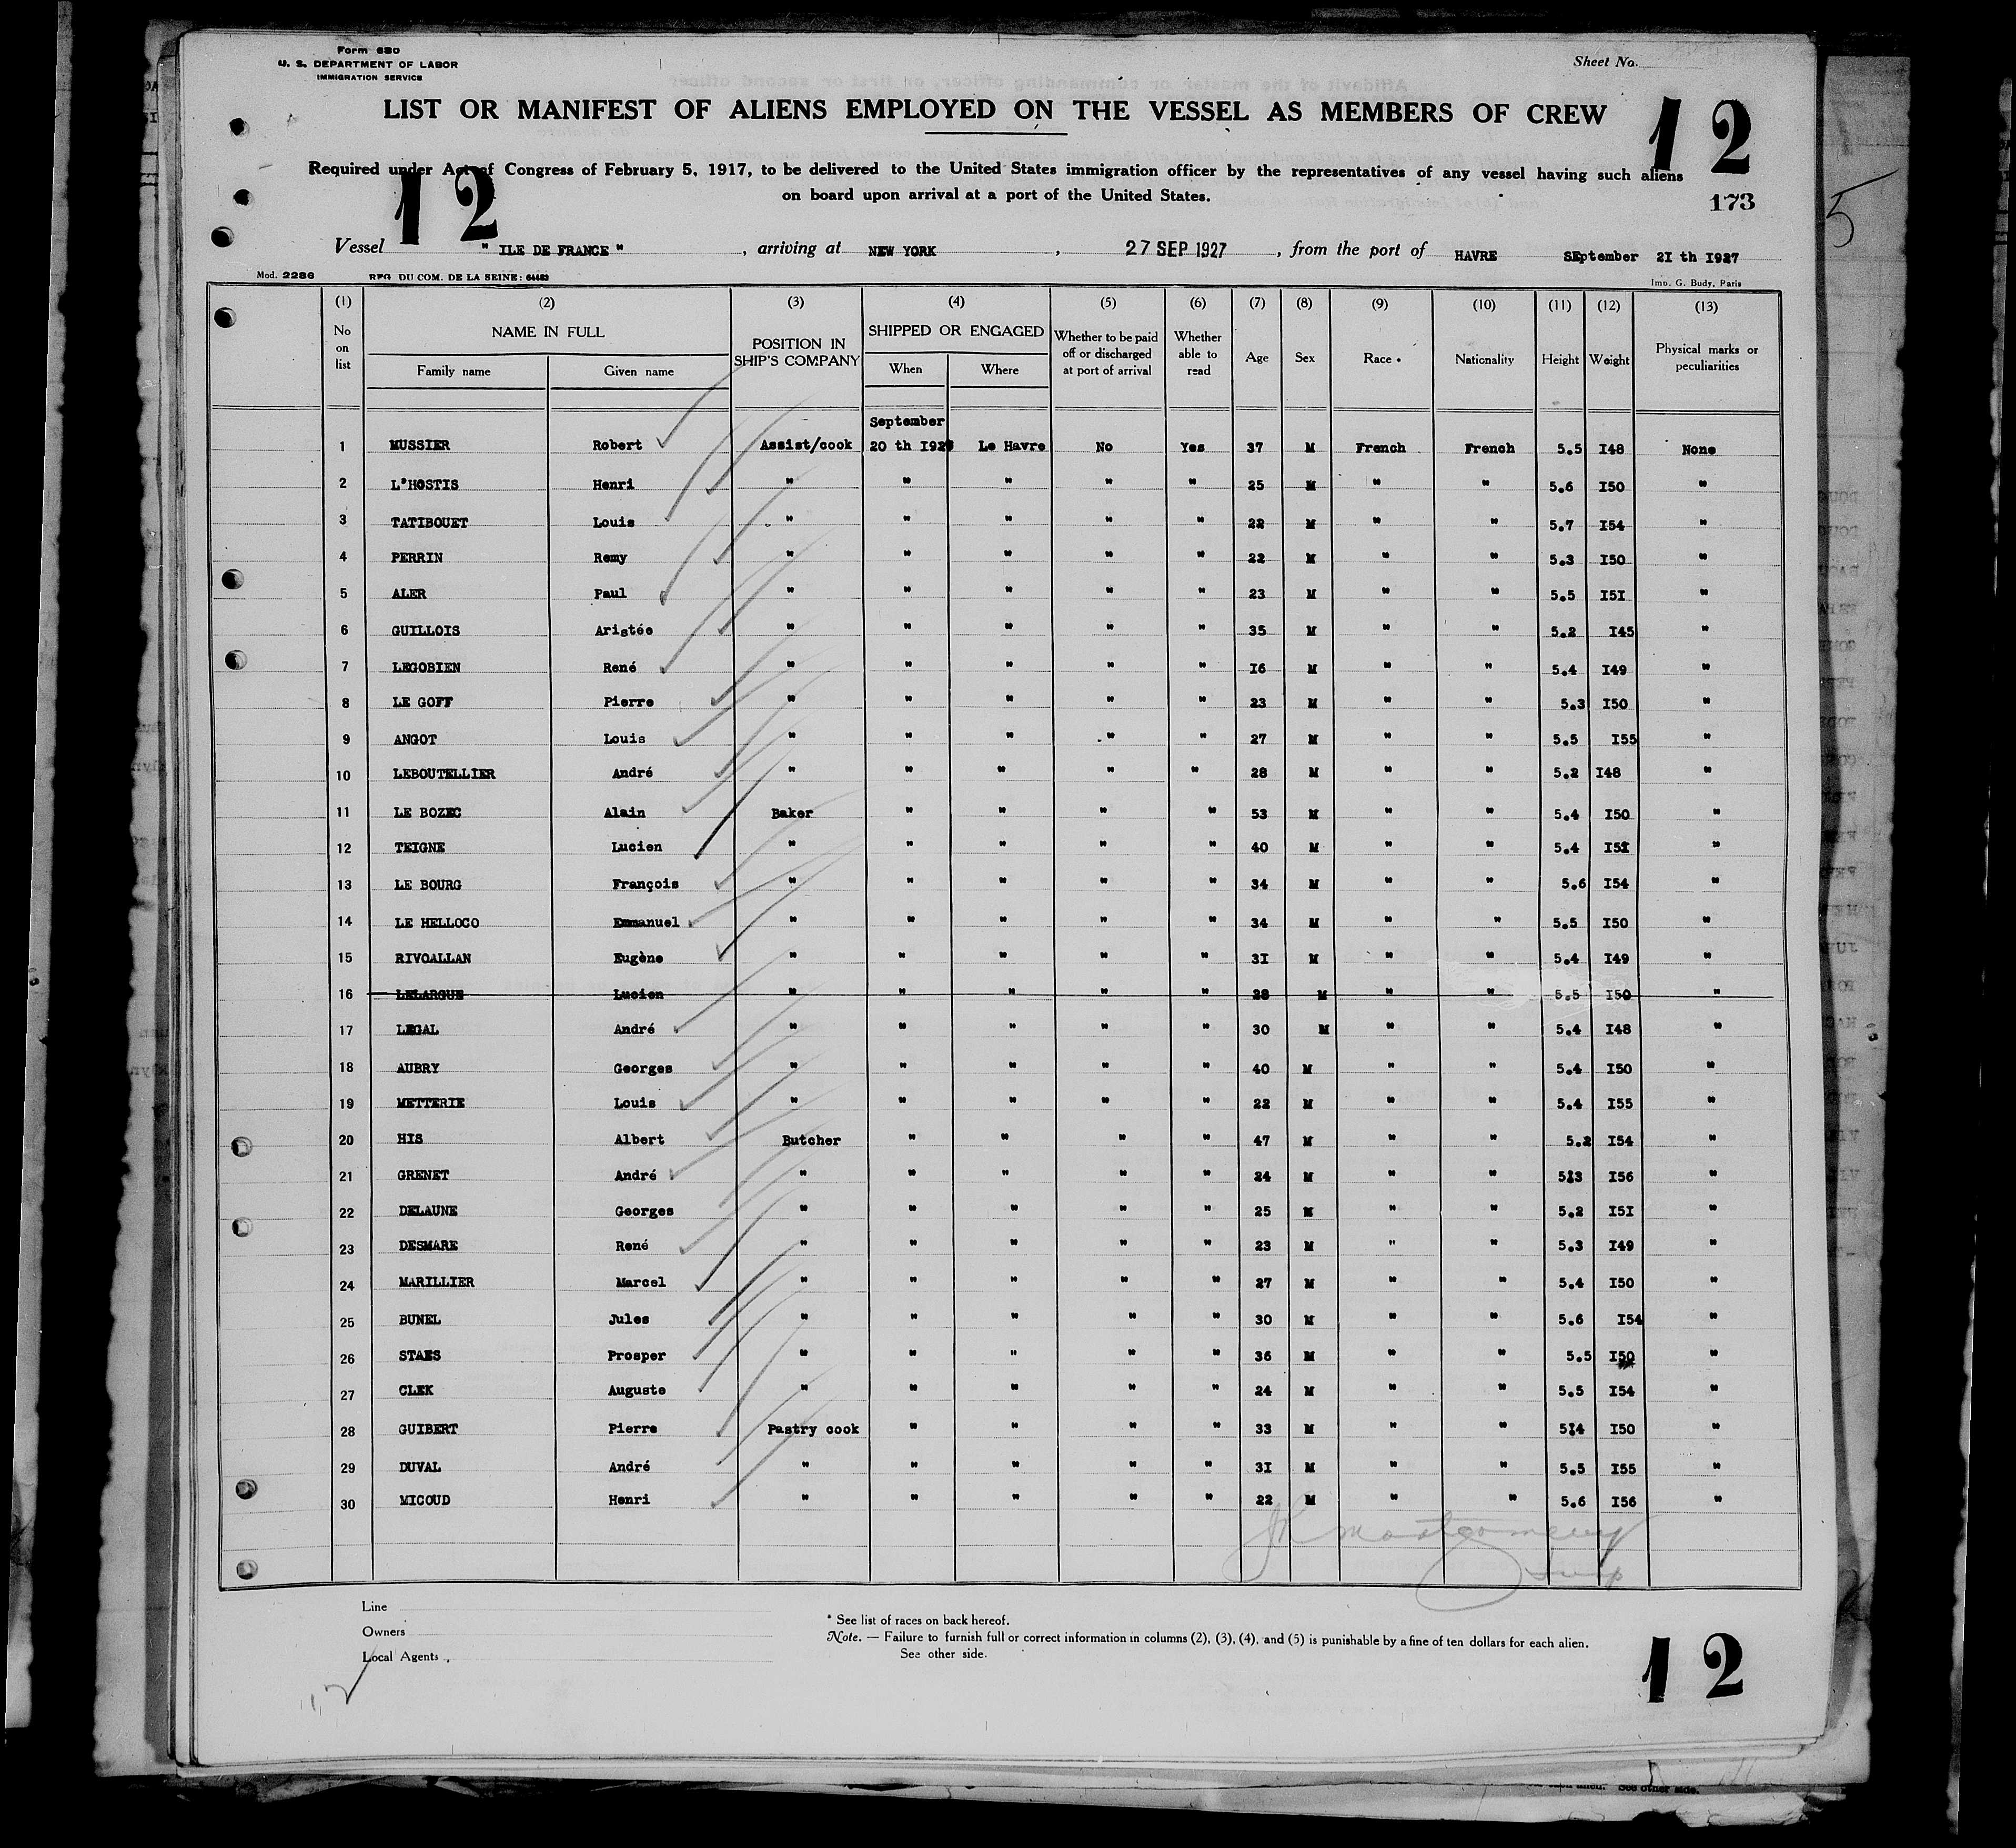 Form 680
U. S. DEPARTMENT OF LABOR
IMMIGRATION SERVICE
Sheet No.
LIST OR MANIFEST OF ALIENS EMPLOYED ON THE VESSEL AS MEMBERS OF CREW
12
Required under Act of Congress of February 5, 1917, to be delivered to the United States immigration officer by the representatives of any vessel having such aliens
on board upon arrival at a port of the United States.
12
173
5
Vessel " ILE DE FRANCE " , arriving at NEW YORK , 27 SEP 1927 , from the port of HAVRE SEptember 2I th I927
Mod. 2286 REG. DU COM. DE LA SEINE: 64483 Imp. G. Budy, Paris
(1) (2) (3) (4) (5) (6) (7) (8) (9) (10) (11) (12) (13)
No on list NAME IN FULL Family name Given name POSITION IN SHIP'S COMPANY SHIPPED OR ENGAGED When Where Whether to be paid off or discharged at port of arrival Whether able to read Age Sex Race * Nationality Height Weight Physical marks or peculiarities
September
1 MUSSIER Robert Assist/cook 20 th I927 Le Havre No Yes 37 M French French 5.5 I48 None
2 L'HOSTIS Henri " " " " " 25 M " " 5.6 I50 "
3 TATIBOUET Louis " " " " " 22 M " " 5.7 I54 "
4 PERRIN Remy " " " " " 22 M " " 5.3 I50 "
5 ALER Paul " " " " " 23 M " " 5.5 I5I "
6 GUILLOIS Aristée " " " " " 35 M " " 5.2 I45 "
7 LEGOBIEN René " " " " " I6 M " " 5.4 I49 "
8 LE GOFF Pierre " " " " " 23 M " " 5.3 I50 "
9 ANGOT Louis " " " " " 27 M " " 5.5 I55 "
10 LEBOUTELLIER André " " " " " 28 M " " 5.2 I48 "
11 LE BOZEC Alain Baker " " " " 53 M " " 5.4 I50 "
12 TEIGNE Lucien " " " " " 40 M " " 5.4 I5I "
13 LE BOURG François " " " " " 34 M " " 5.6 I54 "
14 LE HELLOCO Emmanuel " " " " " 34 M " " 5.5 I50 "
15 RIVOALLAN Eugène " " " " " 3I M " " 5.4 I49 "
16 LELARGUE Lucien " " " " " 28 M " " 5.5 I50 "
17 LEGAL André " " " " " 30 M " " 5.4 I48 "
18 AUBRY Georges " " " " " 40 M " " 5.4 I50 "
19 METTERIE Louis " " " " " 22 M " " 5.4 I55 "
20 HIS Albert Butcher " " " " 47 M " " 5.2 I54 "
21 GRENET André " " " " " 24 M " " 5.3 I56 "
22 DELAUNE Georges " " " " " 25 M " " 5.2 I5I "
23 DESMARE René " " " " " 23 M " " 5.3 I49 "
24 MARILLIER Marcel " " " " " 27 M " " 5.4 I50 "
25 BUNEL Jules " " " " " 30 M " " 5.6 I54 "
26 STAES Prosper " " " " " 36 M " " 5.5 I50 "
27 CLEK Auguste " " " " " 24 M " " 5.5 I54 "
28 GUIBERT Pierre Pastry cook " " " " 33 M " " 5.4 I50 "
29 DUVAL André " " " " " 3I M " " 5.5 I55 "
30 MICOUD Henri " " " " " 22 M " " 5.6 I56 "
JR Montgomery
Insp
Line
Owners
Local Agents
* See list of races on back hereof.
Note. — Failure to furnish full or correct information in columns (2), (3), (4), and (5) is punishable by a fine of ten dollars for each alien.
See other side.
12
12
See other side.